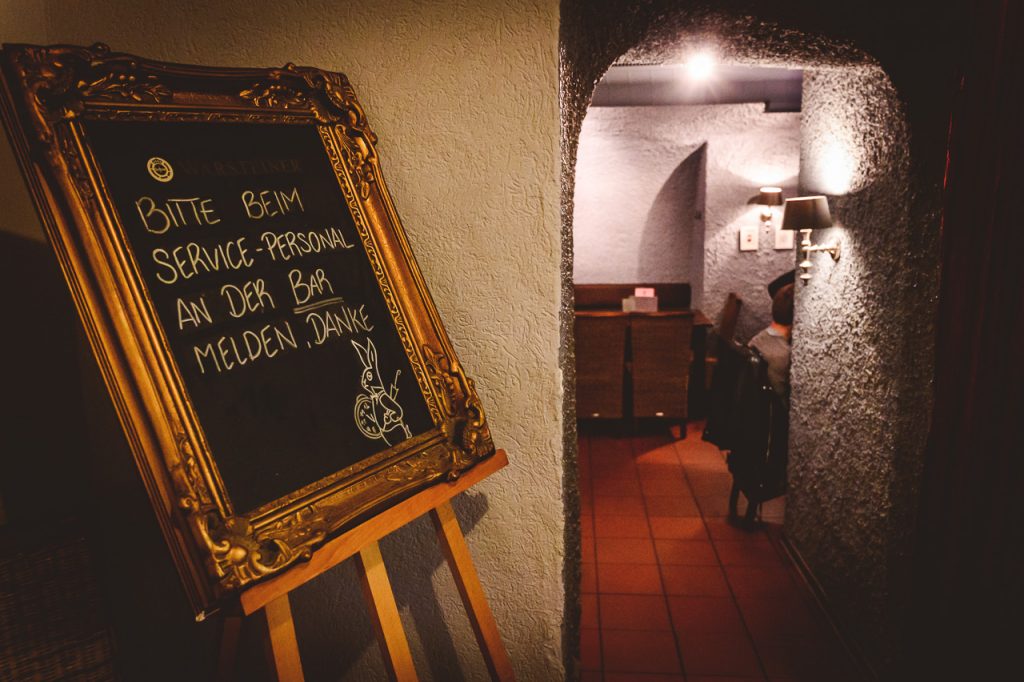 WARSTEINER
BITTE BEIM
SERVICE-PERSONAL
AN DER BAR
MELDEN, DANKE